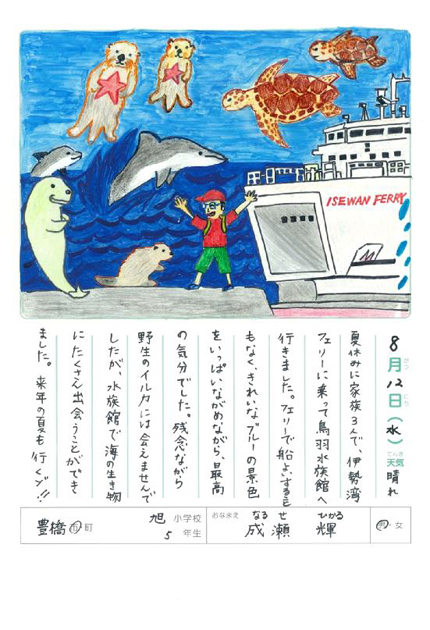 ISEWAN FERRY
8月12日(水)
天気 晴れ
てんき
夏休みに家族3人で、伊勢湾
フェリーに乗って鳥羽水族館へ
行きました。フェリーで船よいするこ
もなく、きれいなブルーの景色
をいっぱいながめながら、最高
の気分でした。残念ながら
野生のイルカには会えませんで
したが、水族館で海の生き物
にたくさん出会うことができ
ました。来年の夏も行くゾ!!
豊橋 市・町
旭 小学校
5 年生
おなまえ
なるせ ひかる
成瀬 輝
男・女